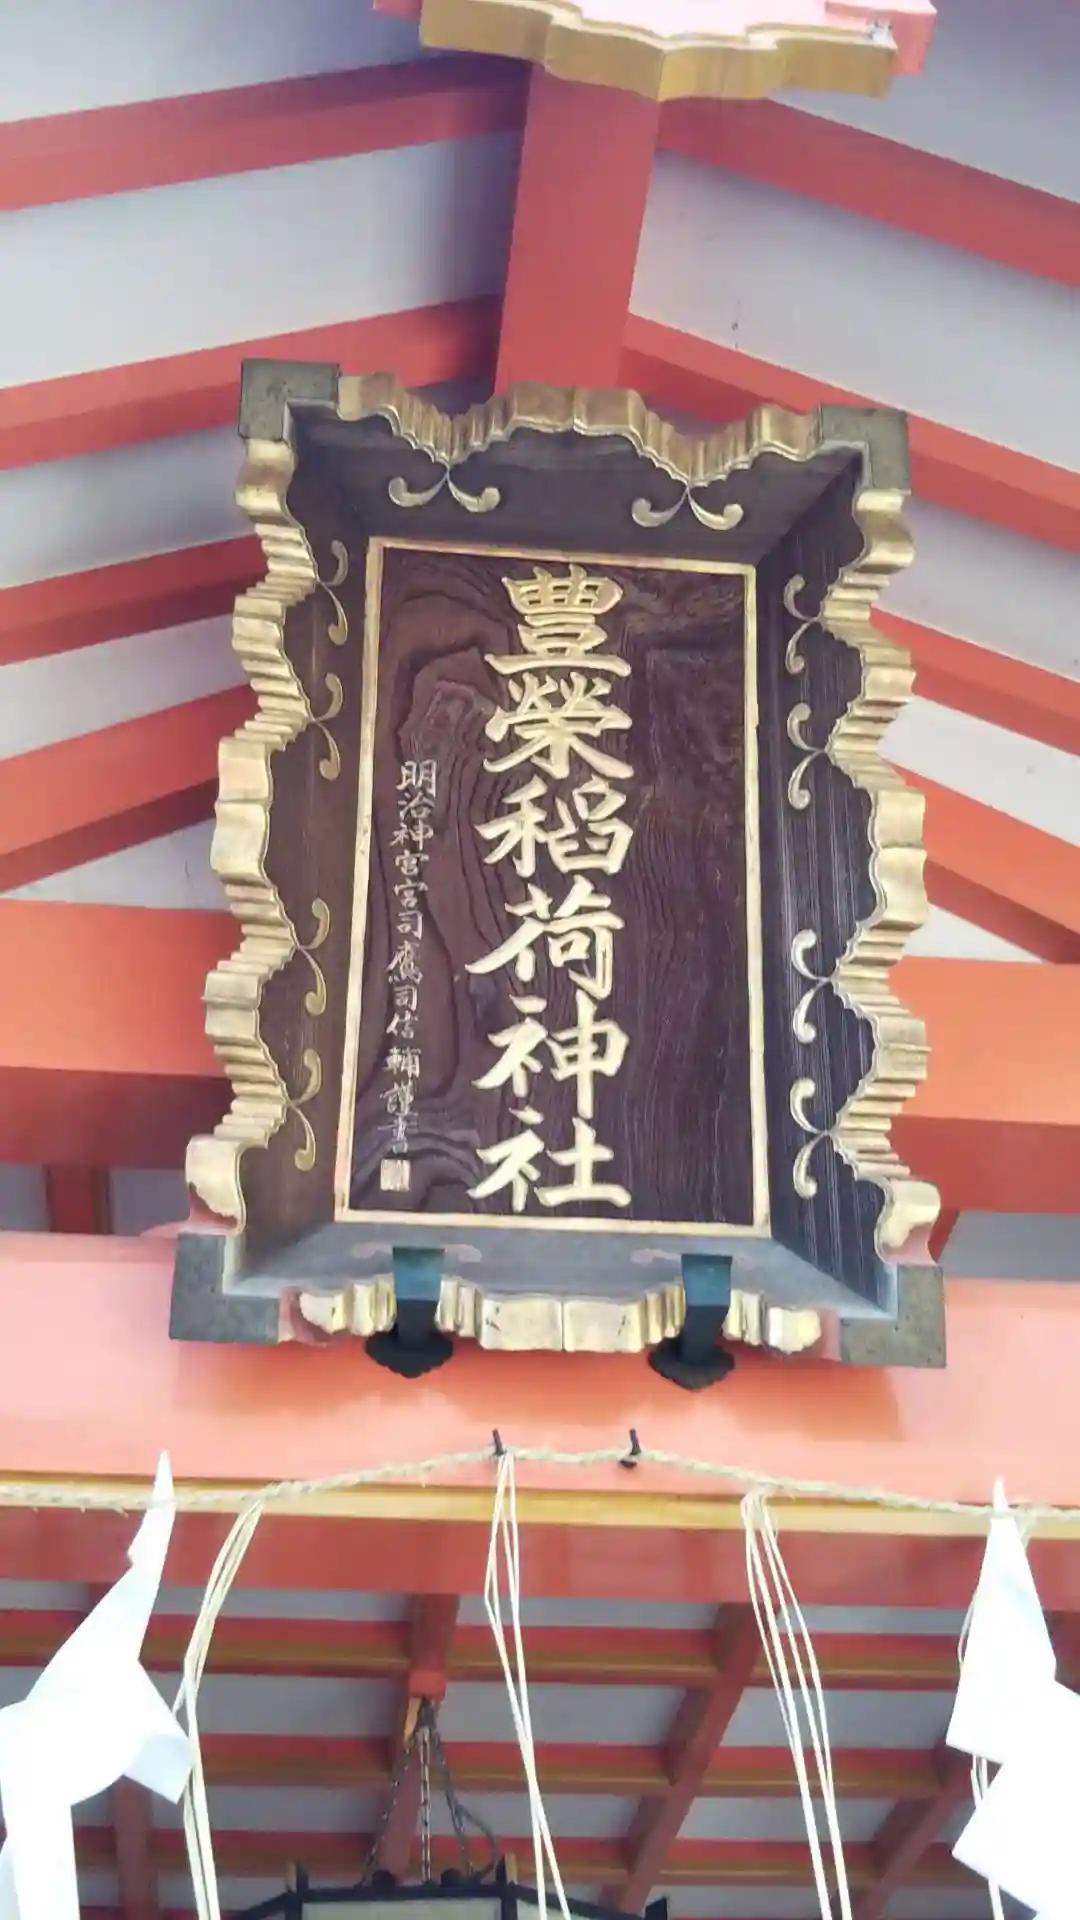 豊榮稲荷神社
明治神宮宮司鷹司信輔謹書